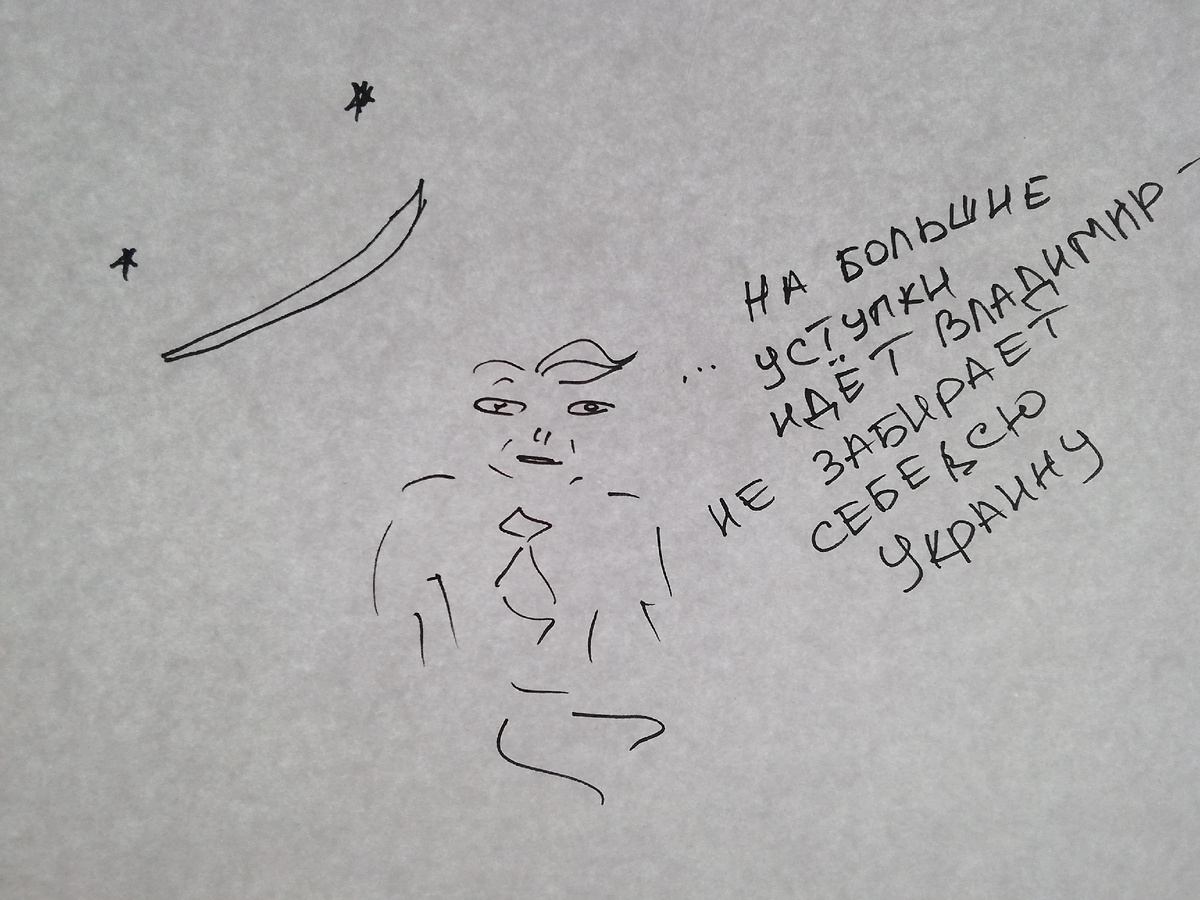 ... НА БОЛЬШИЕ
УСТУПКИ
ИДЁТ ВЛАДИМИР -
НЕ ЗАБИРАЕТ
СЕБЕ ВСЮ
УКРАИНУ